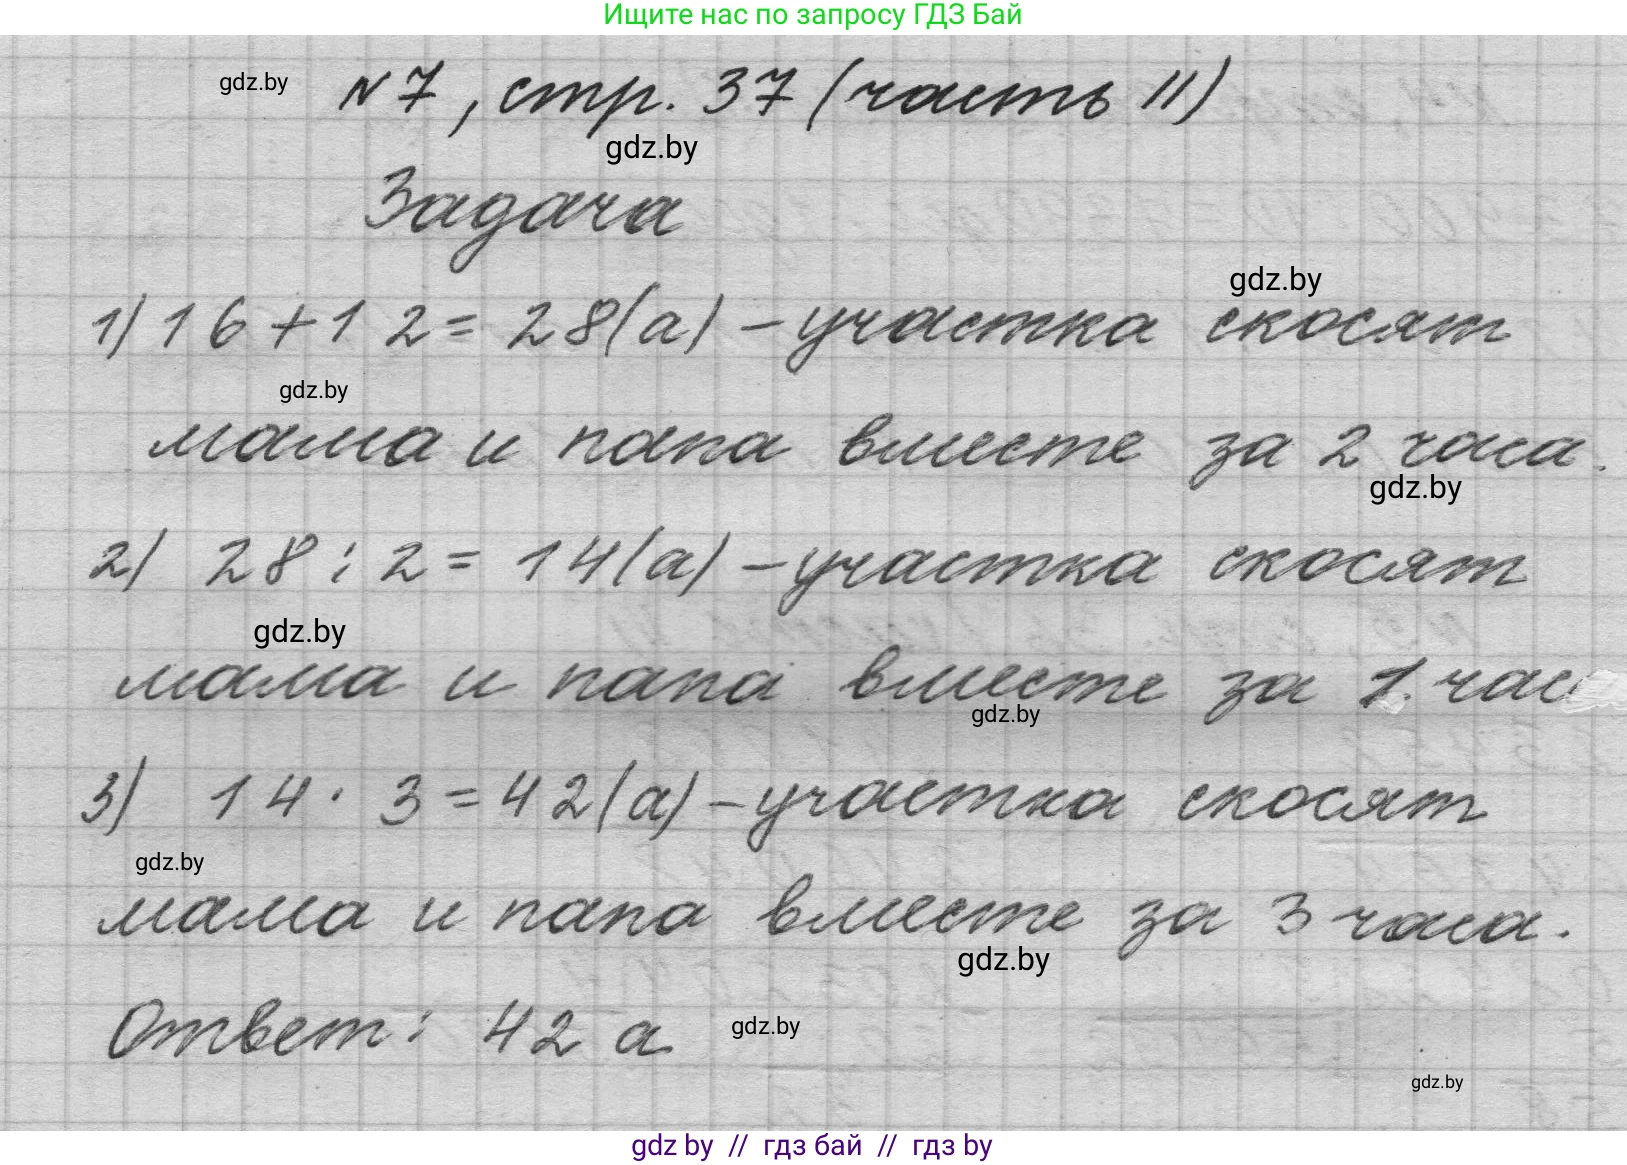 Ищите нас по запросу ГДЗ Бай
gdz.by
№7, стр. 37 (часть II)
gdz.by
Задача
gdz.by
1) 16 + 12 = 28 (а) – участка скосят
gdz.by
мама и папа вместе за 2 часа.
gdz.by
2) 28 : 2 = 14 (а) – участка скосят
gdz.by
мама и папа вместе за 1 час
gdz.by
3) 14 · 3 = 42 (а) – участка скосят
gdz.by
мама и папа вместе за 3 часа.
gdz.by
Ответ: 42 а
gdz.by
gdz.by
gdz by // гдз бай // гдз by